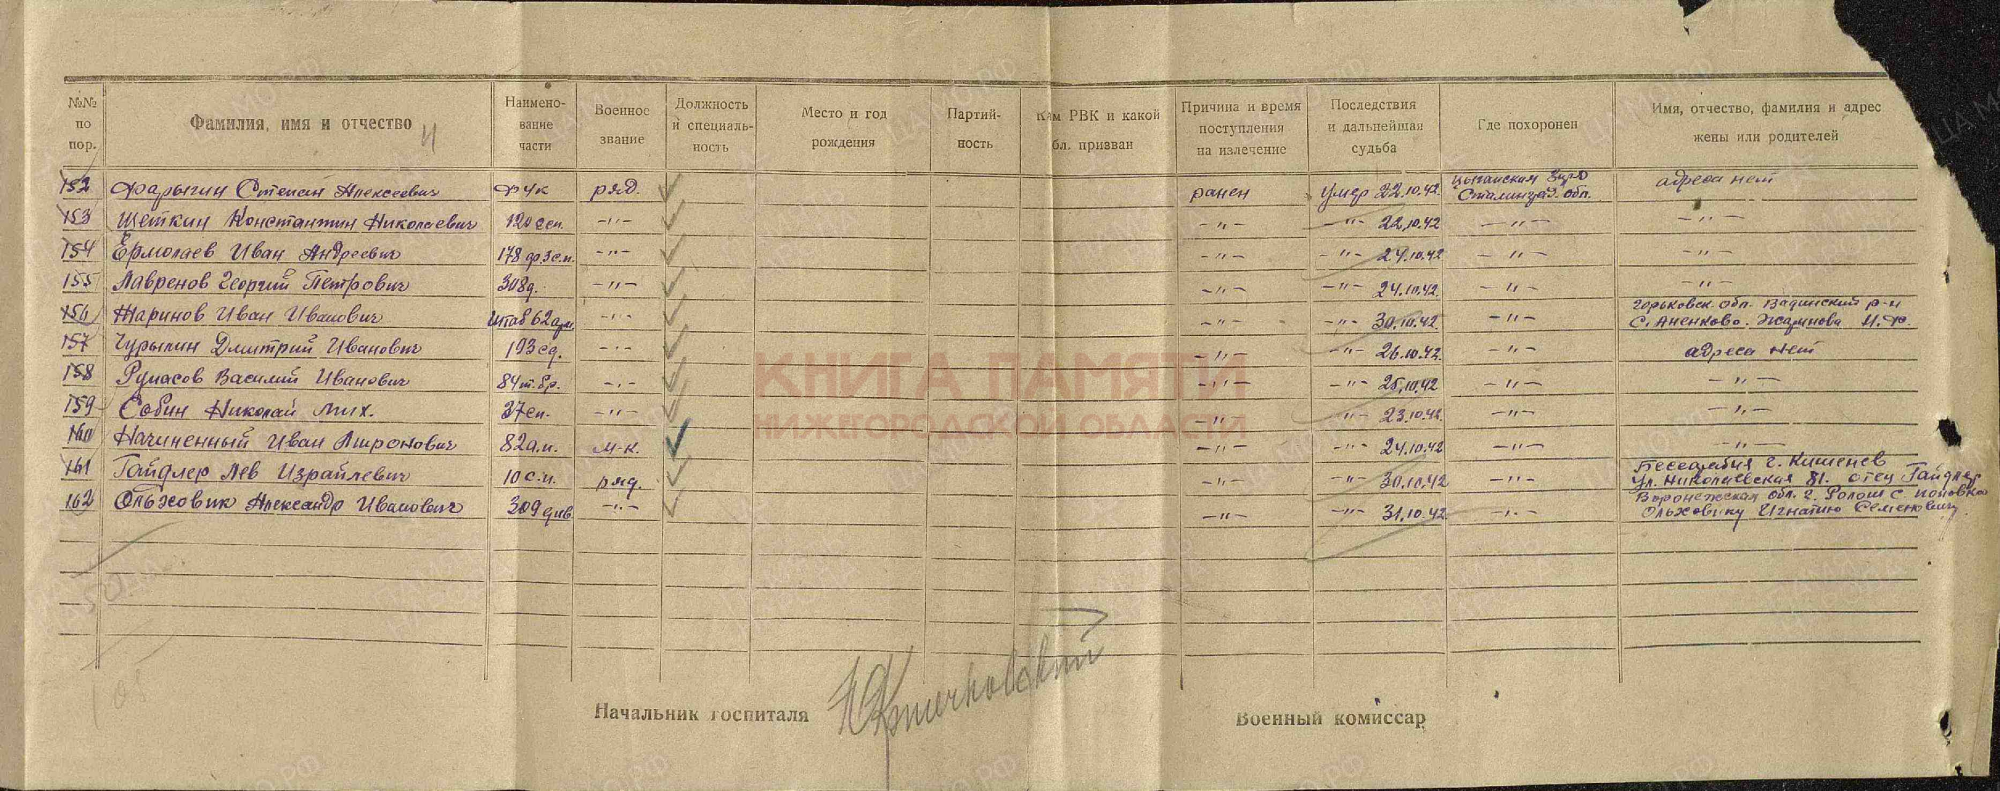 №№ по пор. Фамилия, имя и отчество Наимено-вание части Военное звание Должность и специаль-ность Место и год рождения Партий-ность РВК и какой обл. призван Причина и время поступления на излечение Последствия и дальнейшая судьба Где похоронен Имя, отчество, фамилия и адрес жены или родителей
152 Фарыгин Степан Алексеевич ряд. ранен умер 22.10.42 адреса нет
153 Щеткин Константин Николаевич 120 сп. -"- -"- -"- 22.10.42 -"- -"-
154 Ермолаев Иван Андреевич 178 -"- -"- -"- 24.10.42 -"- -"-
155 Лавренов Георгий Петрович 308д. -"- -"- -"- 24.10.42. -"- -"-
156 Жаринов Иван Иванович Штаб 62 арм. -"- -"- -"- 30.10.42. -"- Горьковск. обл. Вадинский р-н с. Аненково. Жаринова
157 Чурылин Дмитрий Иванович 193 сд. -"- -"- -"- 26.10.42. -"- адреса нет
158 Румасов Василий Иванович 84 т.бр. -"- -"- -"- 25.10.42 -"- -"-
159 Собин Николай Мих. 37 сп. -"- -"- -"- 23.10.42. -"- -"-
160 Начиненный Иван Миронович 82 а.п. м-к. -"- -"- 24.10.42 -"- -"-
161 Гайдлер Лев Израйлевич 10 с.п. ряд. -"- -"- 30.10.42 -"- Бессарабия г. Кишенев ул. Николаевская 81. отец Гайдлер
162 Ольховик Александр Иванович 309 див. -"- -"- -"- 31.10.42 -"- Воронежская обл. с. Поповка Ольховику Игнатию Семеновичу
КНИГА ПАМЯТИ
НИЖЕГОРОДСКОЙ ОБЛАСТИ
Начальник госпиталя
Военный комиссар